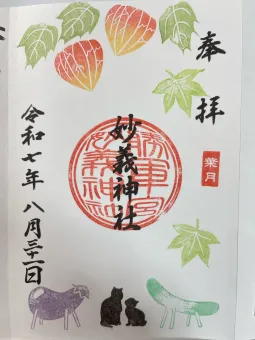 奉拝
葉月
妙義神社
令和七年 八月三十一日